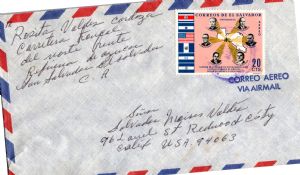 Rosita Valdes Cordoza
Carretera
del norte frente
San Salvador El Salvador
C. A
CORREOS DE EL SALVADOR
20
CTS
CORREO AEREO
VIA AIRMAIL
Señor
Salvador Moises Valdes
96 Laurel St Redwood City
Calif. U.S.A. 94063